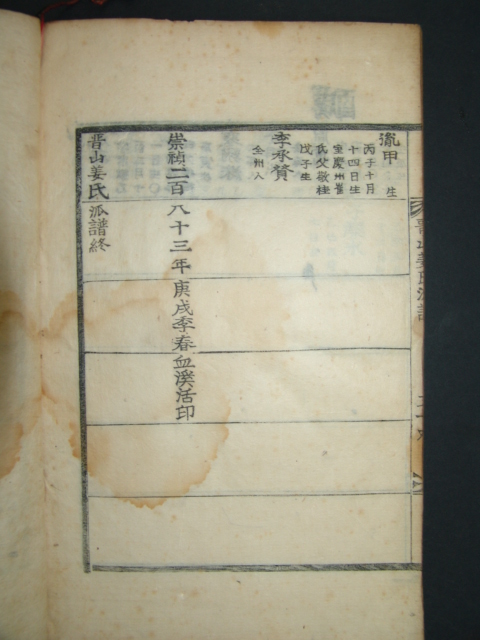 胤甲
生
丙子十月
十四日生
室慶州崔
氏父敬桂
戊子生
李承賛
全州人
崇禎二百八十三年庚戌季春血溪活印
晋山姜氏派譜終
晋山姜氏派譜